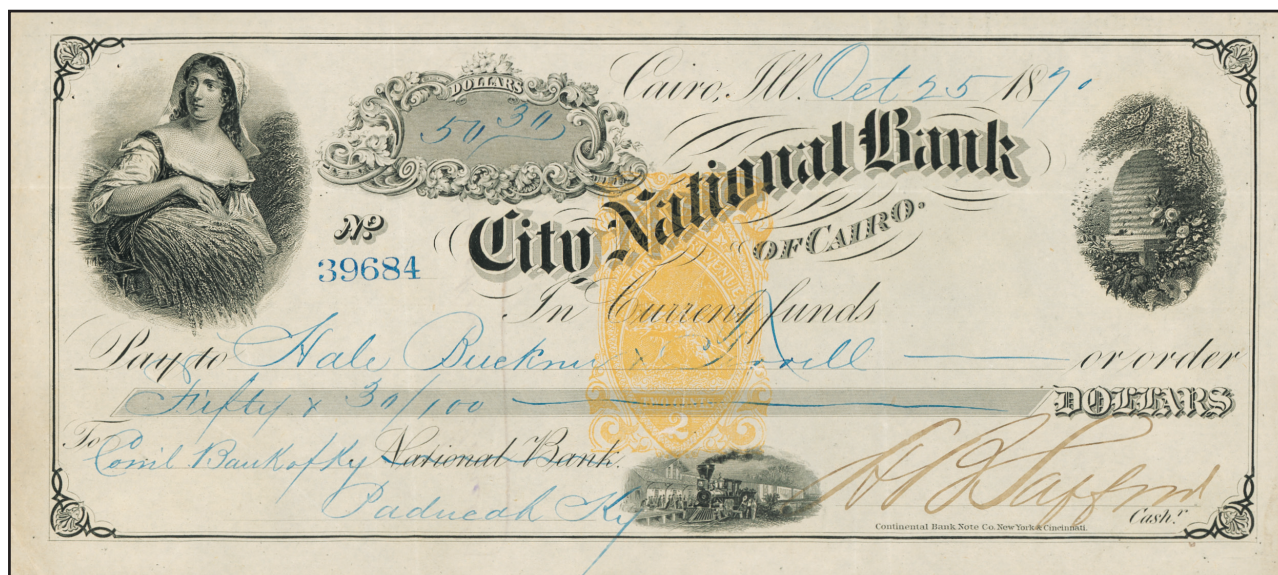 Cairo, Ill. Oct 25 1870
DOLLARS
50 30/
City National Bank
OF CAIRO.
No
39684
In Current funds
Pay to Hale Buckner & or order
Fifty & 30/100 DOLLARS
To Coml Bank of Ky National Bank.
Paducah Ky
2
A B Safford
Cashr
Continental Bank Note Co. New York & Cincinnati.